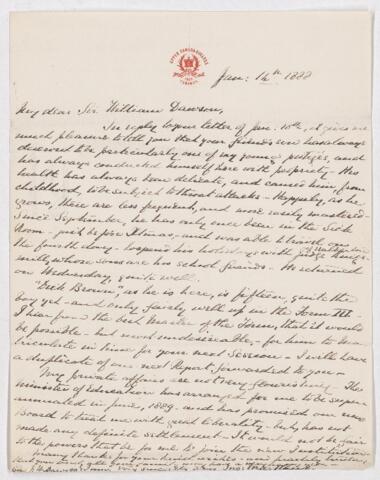 UPPER CANADA COLLEGE
TORONTO
Jan: 16th 1888
My dear Sir William Dawson,
In reply to your letter of Jan. 10th, it gives me
much pleasure to tell you that your friend's son has always
deserved to be particularly one of my young protegés, and
has always conducted himself here with propriety. His
health has always been delicate, and caused him, from
childhood, to be subject to throat attacks. Happily, as he
grows, these are less frequent, and more easily mastered.
Since September, he has only once been in the Sick
Room - just before Xmas - and was able to travel on
the fourth day - to spend his holidays with Judge
family, whose sons are his school friends. He returned
on Wednesday, quite well.
"Dick Brown", as he is here, is fifteen, quite the
boy yet - and only fairly well up in the Form III.
I hear from the best Master of the Form, that it would
be possible - but most undesireable - for him to Ma-
triculate in time for your next Session - I will have
a duplicate of our next Report forwarded to you -
My private affairs are not very flourishing. The
Minister of Education has arranged for me to be super-
annuated in June, 1889. and has promised our new
Board to treat me with great liberality - but, has not
made any definite settlement. It would not be fair
to the powers that be for me to join the new Institution
Many thanks for your kind